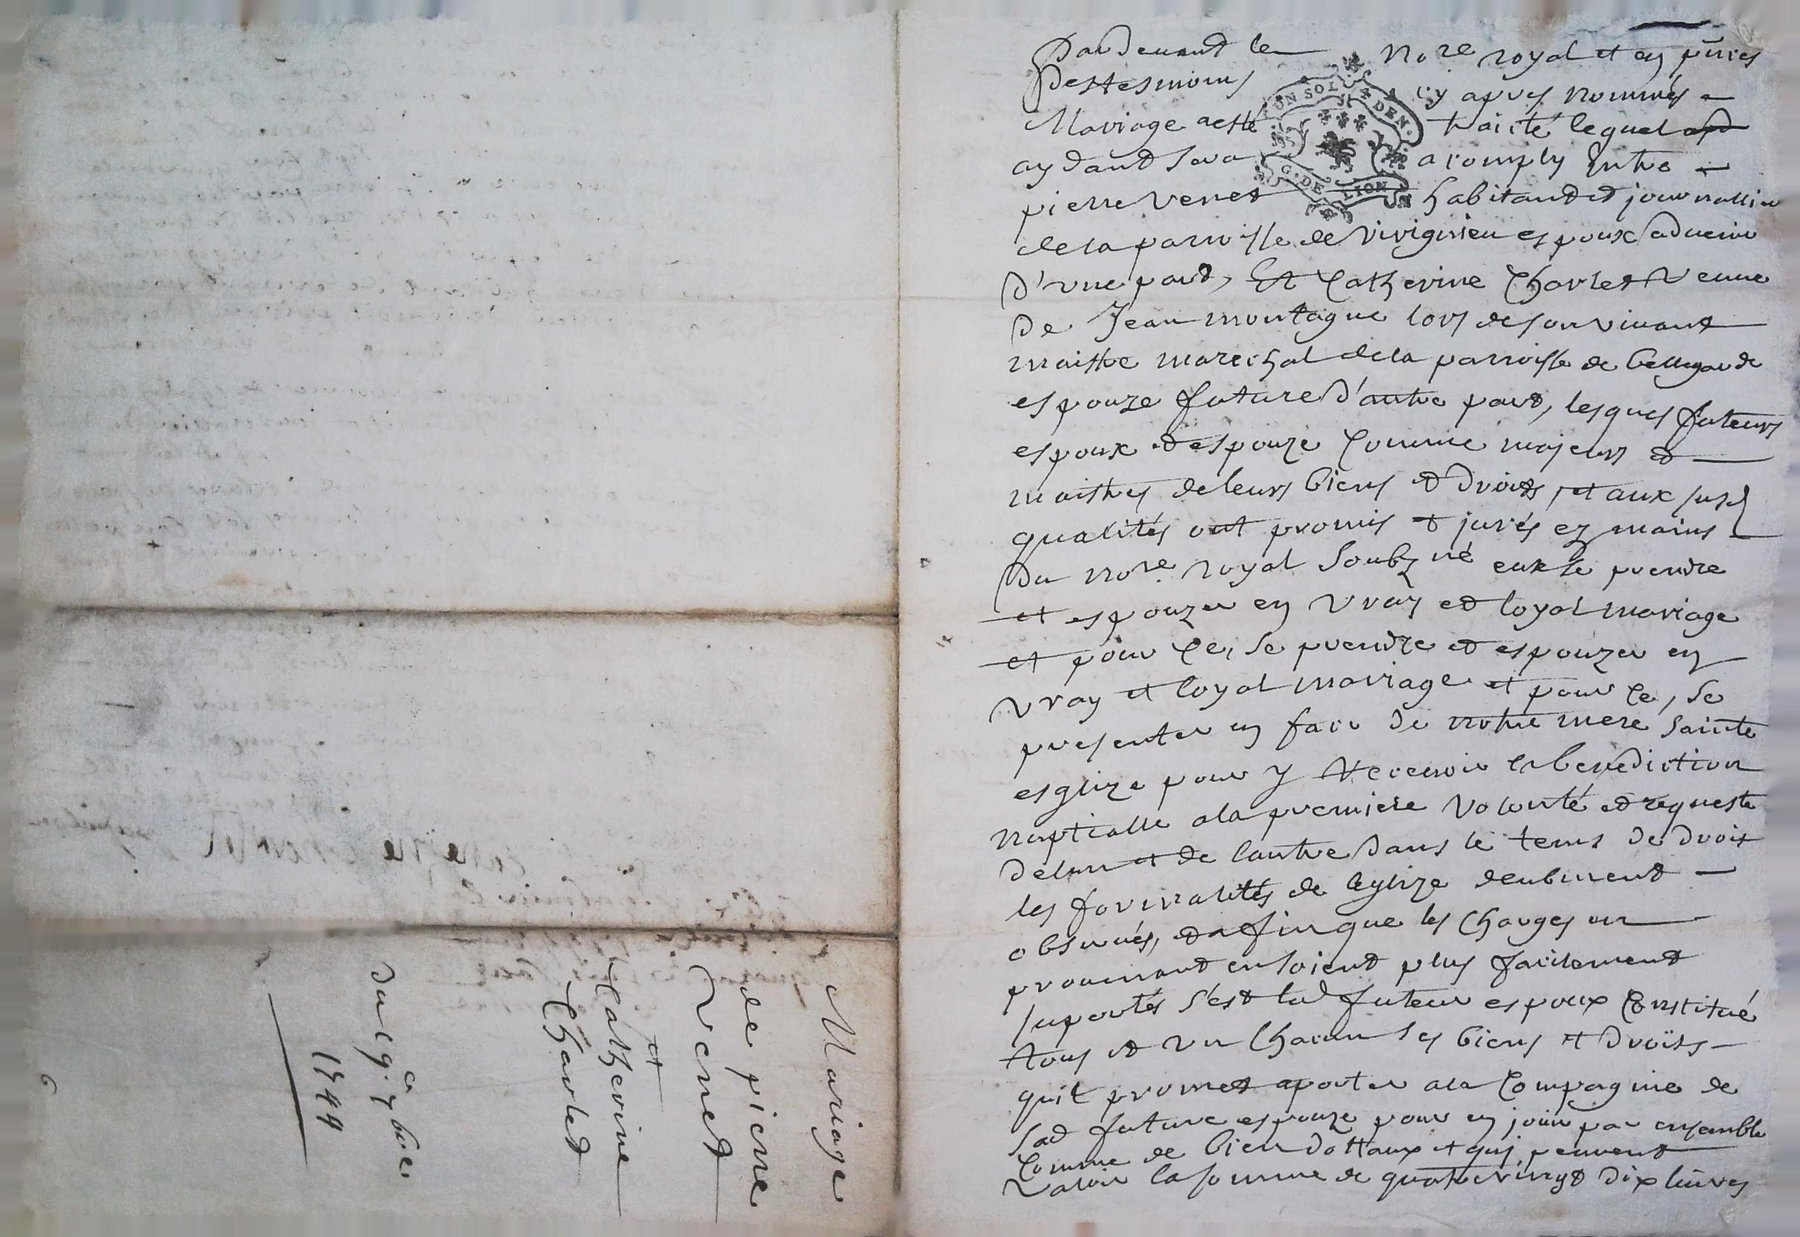 Mariage
de pierre
Venet
et
Catherine
Charlet
Du 19e 7bre
1744
Pardevant le Nore royal et en pnces
Des tesmoins cy apres nommés
Mariage a esté traicté lequel
aydant sera acomply Entre
pierre Venet habitant et journallier
de la parroisse de Virignieu espoux advenir
D'une part, Et Catherine Charlet Veuve
De Jean montagne lors de son vivant
maistre marechal de la parroisse de bellegarde
espouze future D'autre part, lesques futeurs
espoux et espouze Comme majeurs et
maistres de leurs biens et Droits, et aux susd
qualités ont promis et jurés ez mains
Du Nore royal Soubzné eux se prendre
et espouzer en vray et loyal mariage
et pour Ce, se prendre et espouzer en
vray et loyal mariage et pour Ce, se
presenter en face de notre mere Sainte
esglize pour y recevoir la benediction
nuptialle a la premiere volonté et requeste
De lun et de lautre Dans le tems de Droit
les formalités de leglize deubment
observés, et afin que les Charges en
provenant en soient plus facilement
suportés s'est led futeur espoux Constitué
tous et un Chacun ses biens et Droits
quil promet aporter a la Compagnie de
sad future espouze pour en jouir par ensemble
Comme de bien dottaux et qui peuvent
valoir la somme de quatre vingt Dix livres
UN SOL 4 DEN.
G. DE LION